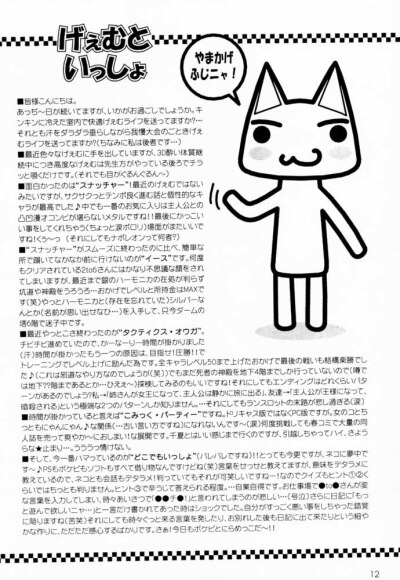 げぇむと
いっしょ
やまかげ
ふじニャ！
■皆様こんにちは。
あっぢ～日が続いてますが、いかがお過ごしでしょうか。キ
ンキンに冷えた室内で快適げぇむライフを送ってますか?…
それとも汗をダラダラ垂らしながら我慢大会のごときげえ
むライフを送ってますか?(ちなみに私は後者です…)
■最近色々なげえむに手を出していますが、3D酔い体質継
続中につき高度なげえむは先生方がやっている後ろでチラ
ッと覗くだけです。(それでも目がぐるんぐるん～)
■面白かったのは"スナッチャー"!最近のげえむではない
みたいですが、サクサクっとテンポ良く進む話と個性的なキ
ャラが最高でした♪中でも一番のお気に入りは主人公との
凸凹漫才コンビが堪らないメタルですね!!最後にかっこい
い事をしてくれちゃう(ちょっと涙ポロリ)場面がまたいいで
すね!く～っ (それにしてもナポレオンって何者?)
■"スナッチャー"がスムーズに終わったのに比べ、簡単な
所で躓いてなかなか前に行けないのが"イース"です。何度
もクリアされている2to6さんにはかなり不思議な顔をされ
てしまいますが、最近まで銀のハーモニカの在処が判らず
坑道や神殿をうろうろ…おかげでレベルと所持金はMAXで
す(笑)やっとハーモニカと(存在を忘れていた)シルバーな
んとか(名前が思い出せなひ…)を入手して、只今ダームの
塔6階で迷子中です。
■最近やっとこさ終わったのが"タクティクス・オウガ"。
チビチビ進めていたので、かーなりー時間が掛かりました
(汗)時間が掛かったもう一つの原因は、目指せ!圧勝!!で
トレーニングでレベル上げに励んだ為です。全キャラレベル50まで上げたおかげで最後の戦いも結構楽勝でし
た♪(これは邪道なやり方なのでしょうが(笑))でもまだ死者の神殿を地下4階までしか行っていないので(噂で
は地下??階まであるとか…ひえぇ～)探検してみるのもいいですね!それにしてもエンディングはどれくらいパター
ンがあるのでしょう?私→「姉さんが女王になって、主人公は静かに旅に出る」、友達→「主人公が王様になって、
暗殺される」という極端な2つのパターンしか知りません…それにしてもランスロットの末路が悲し過ぎる(涙)
■時間が掛かっていると言えば"こみっく・パーティー"ですね。ドリキャス版ではなくPC版ですが。女のコとら
っともにゃんにゃん♪な関係…(古い言い方ですね)になれないんです～(涙)何度挑戦しても春コミで大量の同
人誌を売って爽やかに～おしまい!な展開です。千夏とはいい感じまで行くのですが、引越しちゃってハイ、さよう
なら★止まり…。うううっ情けない。
■そして、今一番ハマっているのが"どこでもいっしょ"(バレバレですね)!!とっても今更ですが、ネコに夢中
です～♪PSもポケピもソフトも全て借り物なんですけどね(笑)言葉をせっせと教えてますが、意味をデタラメに
教えているので、ネコとも会話もデタラメ!判っていてもそれが可笑しいですね!なのでクイズもヒント①②く
らいではちっとも判りません。ヒント③で辛うじて答えられる程度…自業自得です。お仕事場で●to●さんが変
な言葉を入力してしまい、時々あいさつで「●●子●!」と言われてしまうのが悲しい…(号泣)さらに日記に「もっ
と遊んで欲しいニャ…」と一言だけ書かれてあった時はショックでした。自分がすっごく悪い事をしちゃった錯覚
に陥りますね(苦笑)それにしても時々ぐっと来る言葉を発したり、お別れした後も日記に出て来たりという細や
かな作りに、ただただ感心するばかりです。さぁ!今日もポケピとにらめっこだーーー!!
12